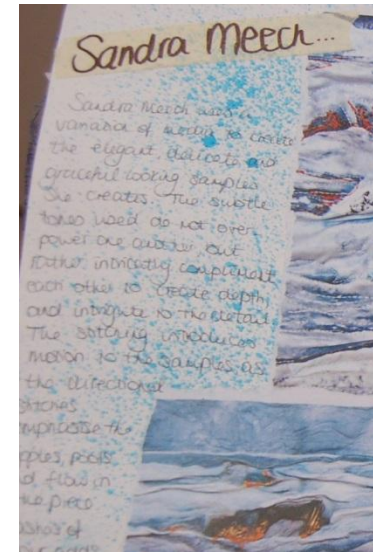 Sandra Meech...
Sandra Meech uses a
of media to create
the elegant, delicate and
graceful looking samples
she creates. The subtle
tones used do not over
power one another but
rather intricatly compliment
each other to create depth
and intrigute to the detail.
The stitching introduces
motion to the samples as
the directional
stitches
emphasise the
ripples, pools
d flow in
the piece